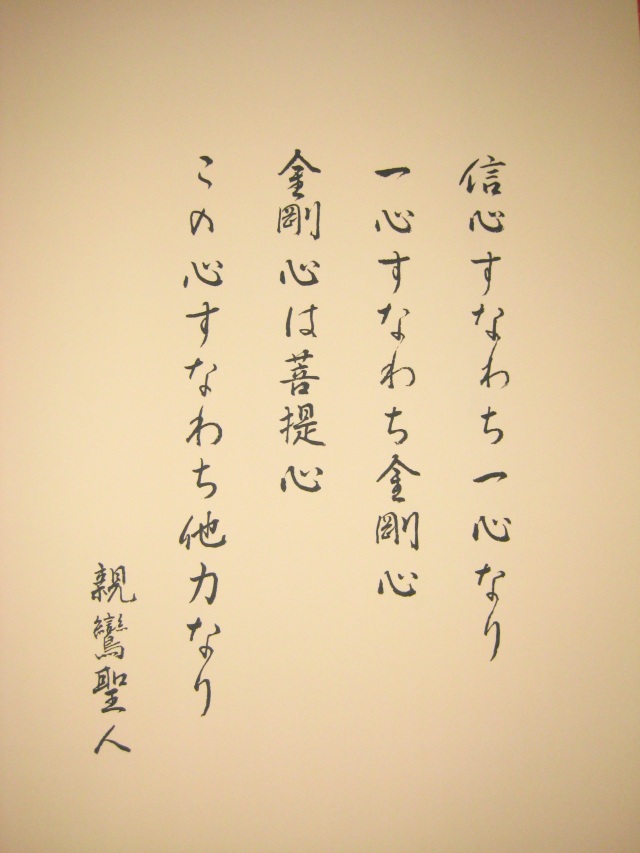 信心すなわち一心なり
一心すなわち金剛心
金剛心は菩提心
この心すなわち他力なり
親鸞聖人